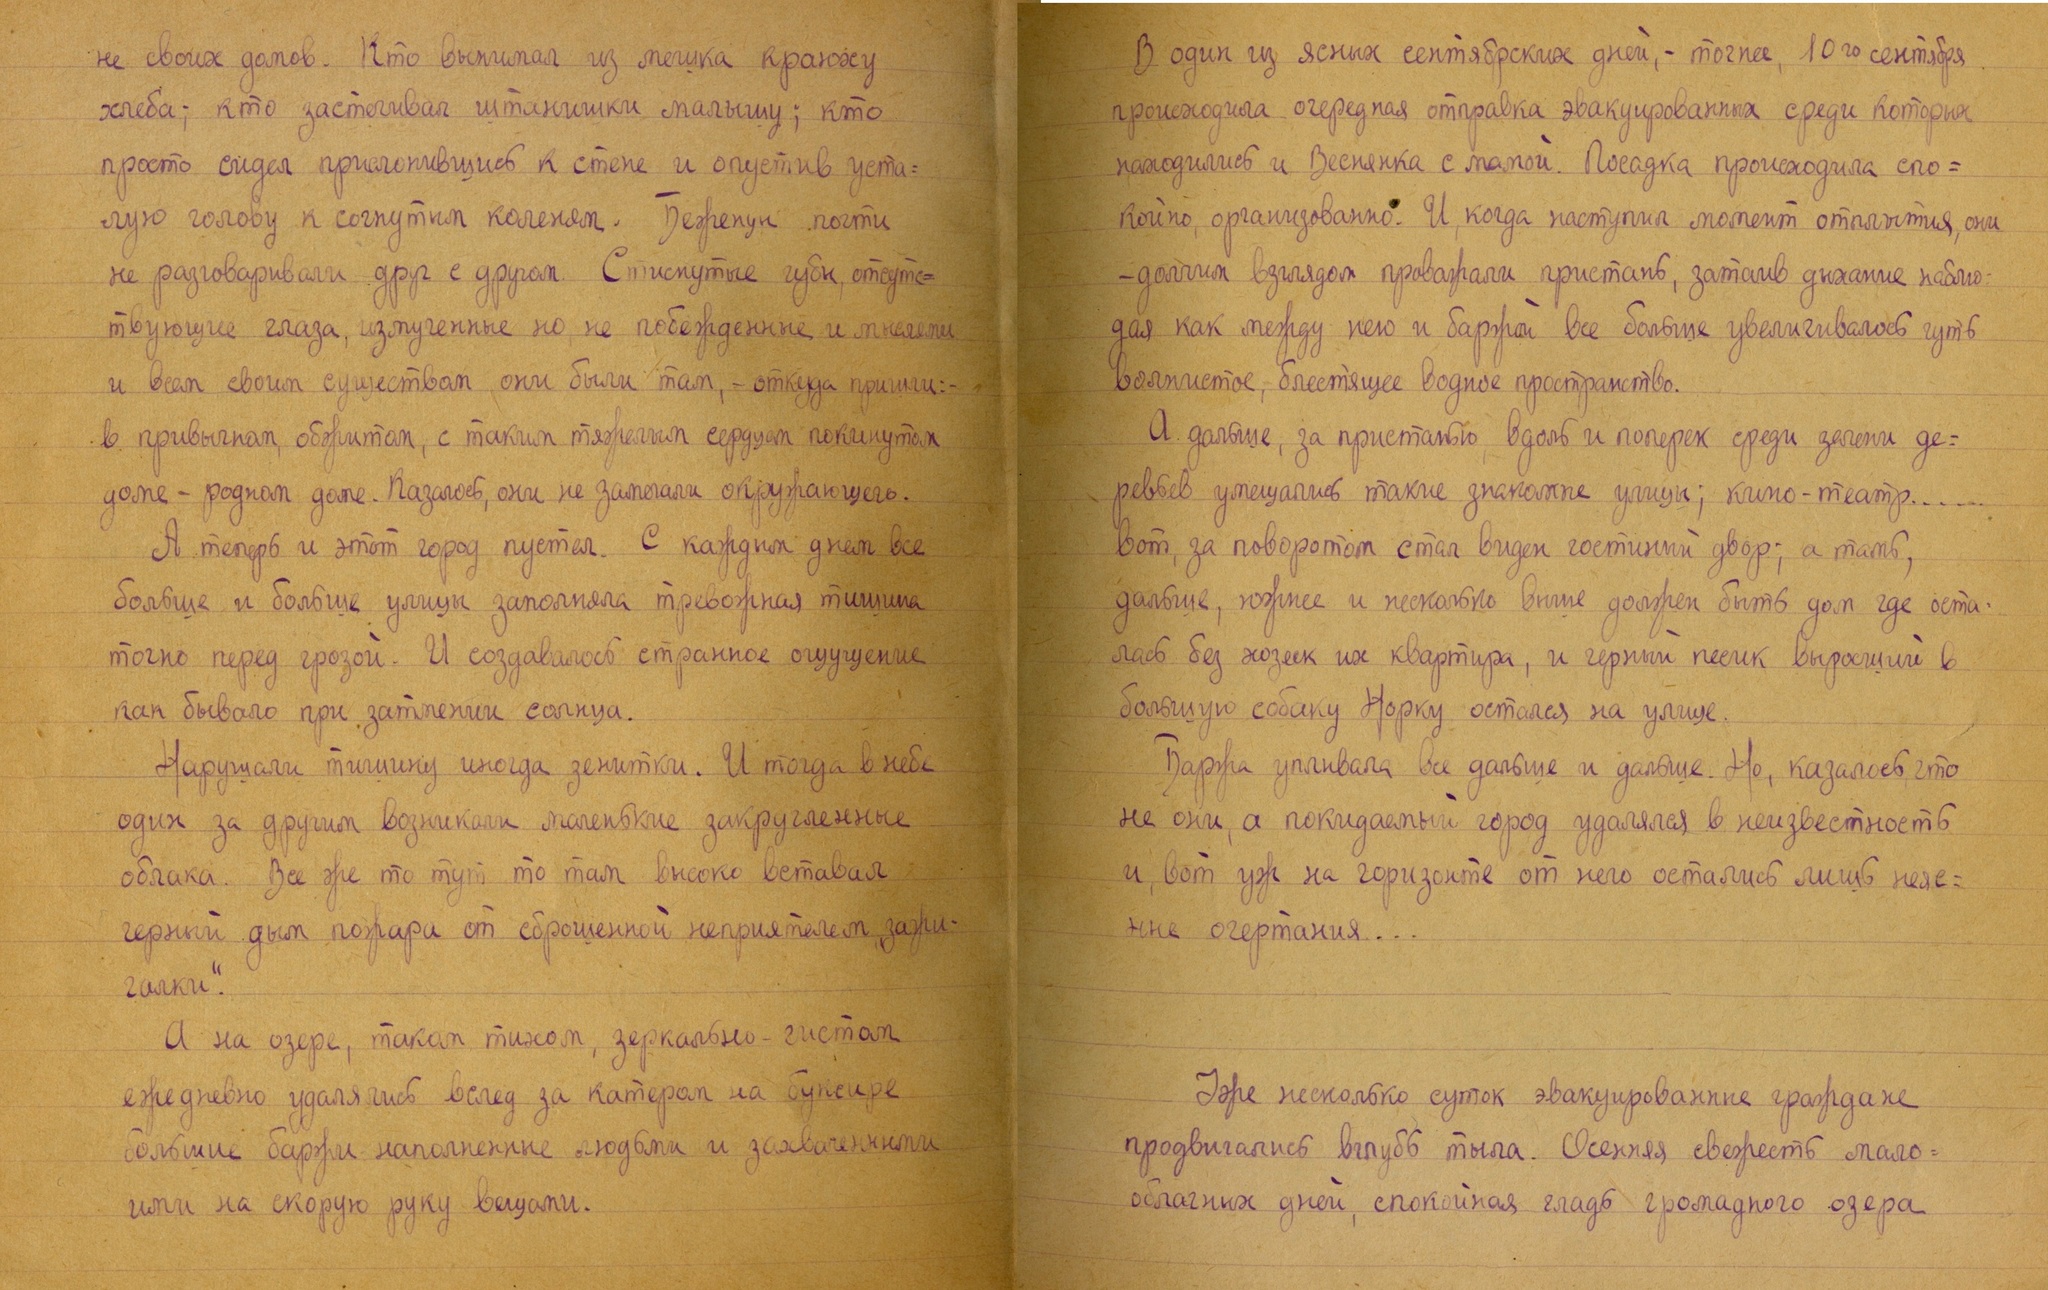 не своих домов. Кто вынимал из мешка краюху
хлеба; кто застегивал штанишки малышу; кто
просто сидел прислонившись к стене и опустив уста=
лую голову к согнутым коленям. Беженцы почти
не разговаривали друг с другом. Стиснутые губы, отсутс=
твующие глаза, измученные но не побежденные и мыслями
и всем своим существом они были там, - откуда пришли:-
в привычном, обжитом, с таким тяжелым сердцем покинутом
доме - родном доме. Казалось, они не замечали окружающего.
А теперь и этот город пустел. С каждым днем все
больше и больше улицы заполняла тревожная тишина
точно перед грозой. И создавалось странное ощущение
как бывало при затмении солнца.
Нарушали тишину иногда зенитки. И тогда в небе
один за другим возникали маленькие закругленные
облака. Все же то тут то там высоко вставал
черный дым пожара от сброшенной неприятелем „зажи-
галки“.
А на озере, таком тихом, зеркально-чистом
ежедневно удалялись вслед за катером на буксире
большие баржи наполненные людьми и захваченными
ими на скорую руку вещами.
В один из ясных сентябрских дней, - точнее, 10го сентября
происходила очередная отправка эвакуированных среди которых
находились и Веснянка с мамой. Посадка происходила спо=
койно, организованно. И, когда наступил момент отплытия, они
-долгим взглядом провожали пристань, затаив дыхание наблю-
дая как между нею и баржой все больше увеличивалось чуть
волнистое, блестящее водное пространство.
А дальше, за пристанью вдоль и поперек среди зелени де=
ревьев умещались такие знакомые улицы; кино-театр......
вот, за поворотом стал виден гостиный двор; а тамь,
дальше, южнее и несколько выше должен быть дом где оста-
лась без хозяек их квартира, и черный песик выросший в
большую собаку Норку остался на улице.
Баржа уплывала все дальше и дальше. Но, казалось, что
не они, а покидаемый город удалялся в неизвестность
и, вот уж на горизонте от него остались лишь неяс=
ные очертания...
Уже несколько суток эвакуированные граждане
продвигались вглубь тыла. Осенняя свежесть мало=
облачных дней, спокойная гладь громадного озера